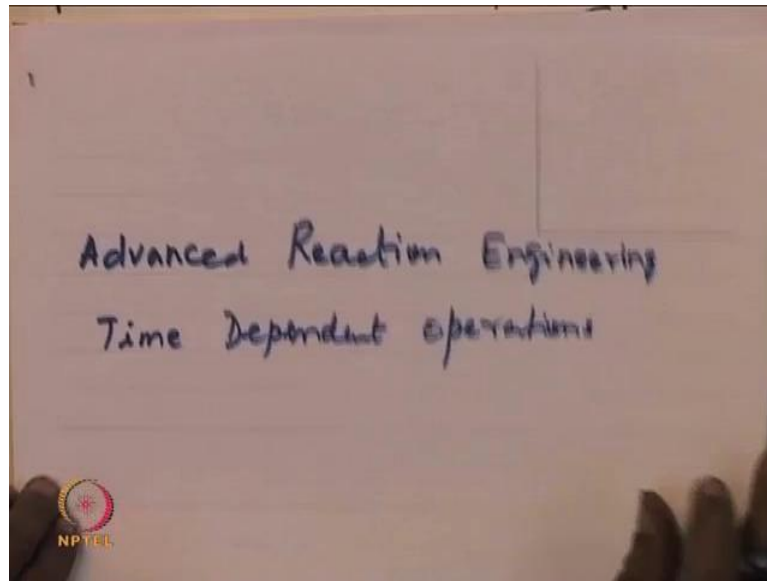 Advanced Reaction Engineering
Time Dependent operations
NPTEL